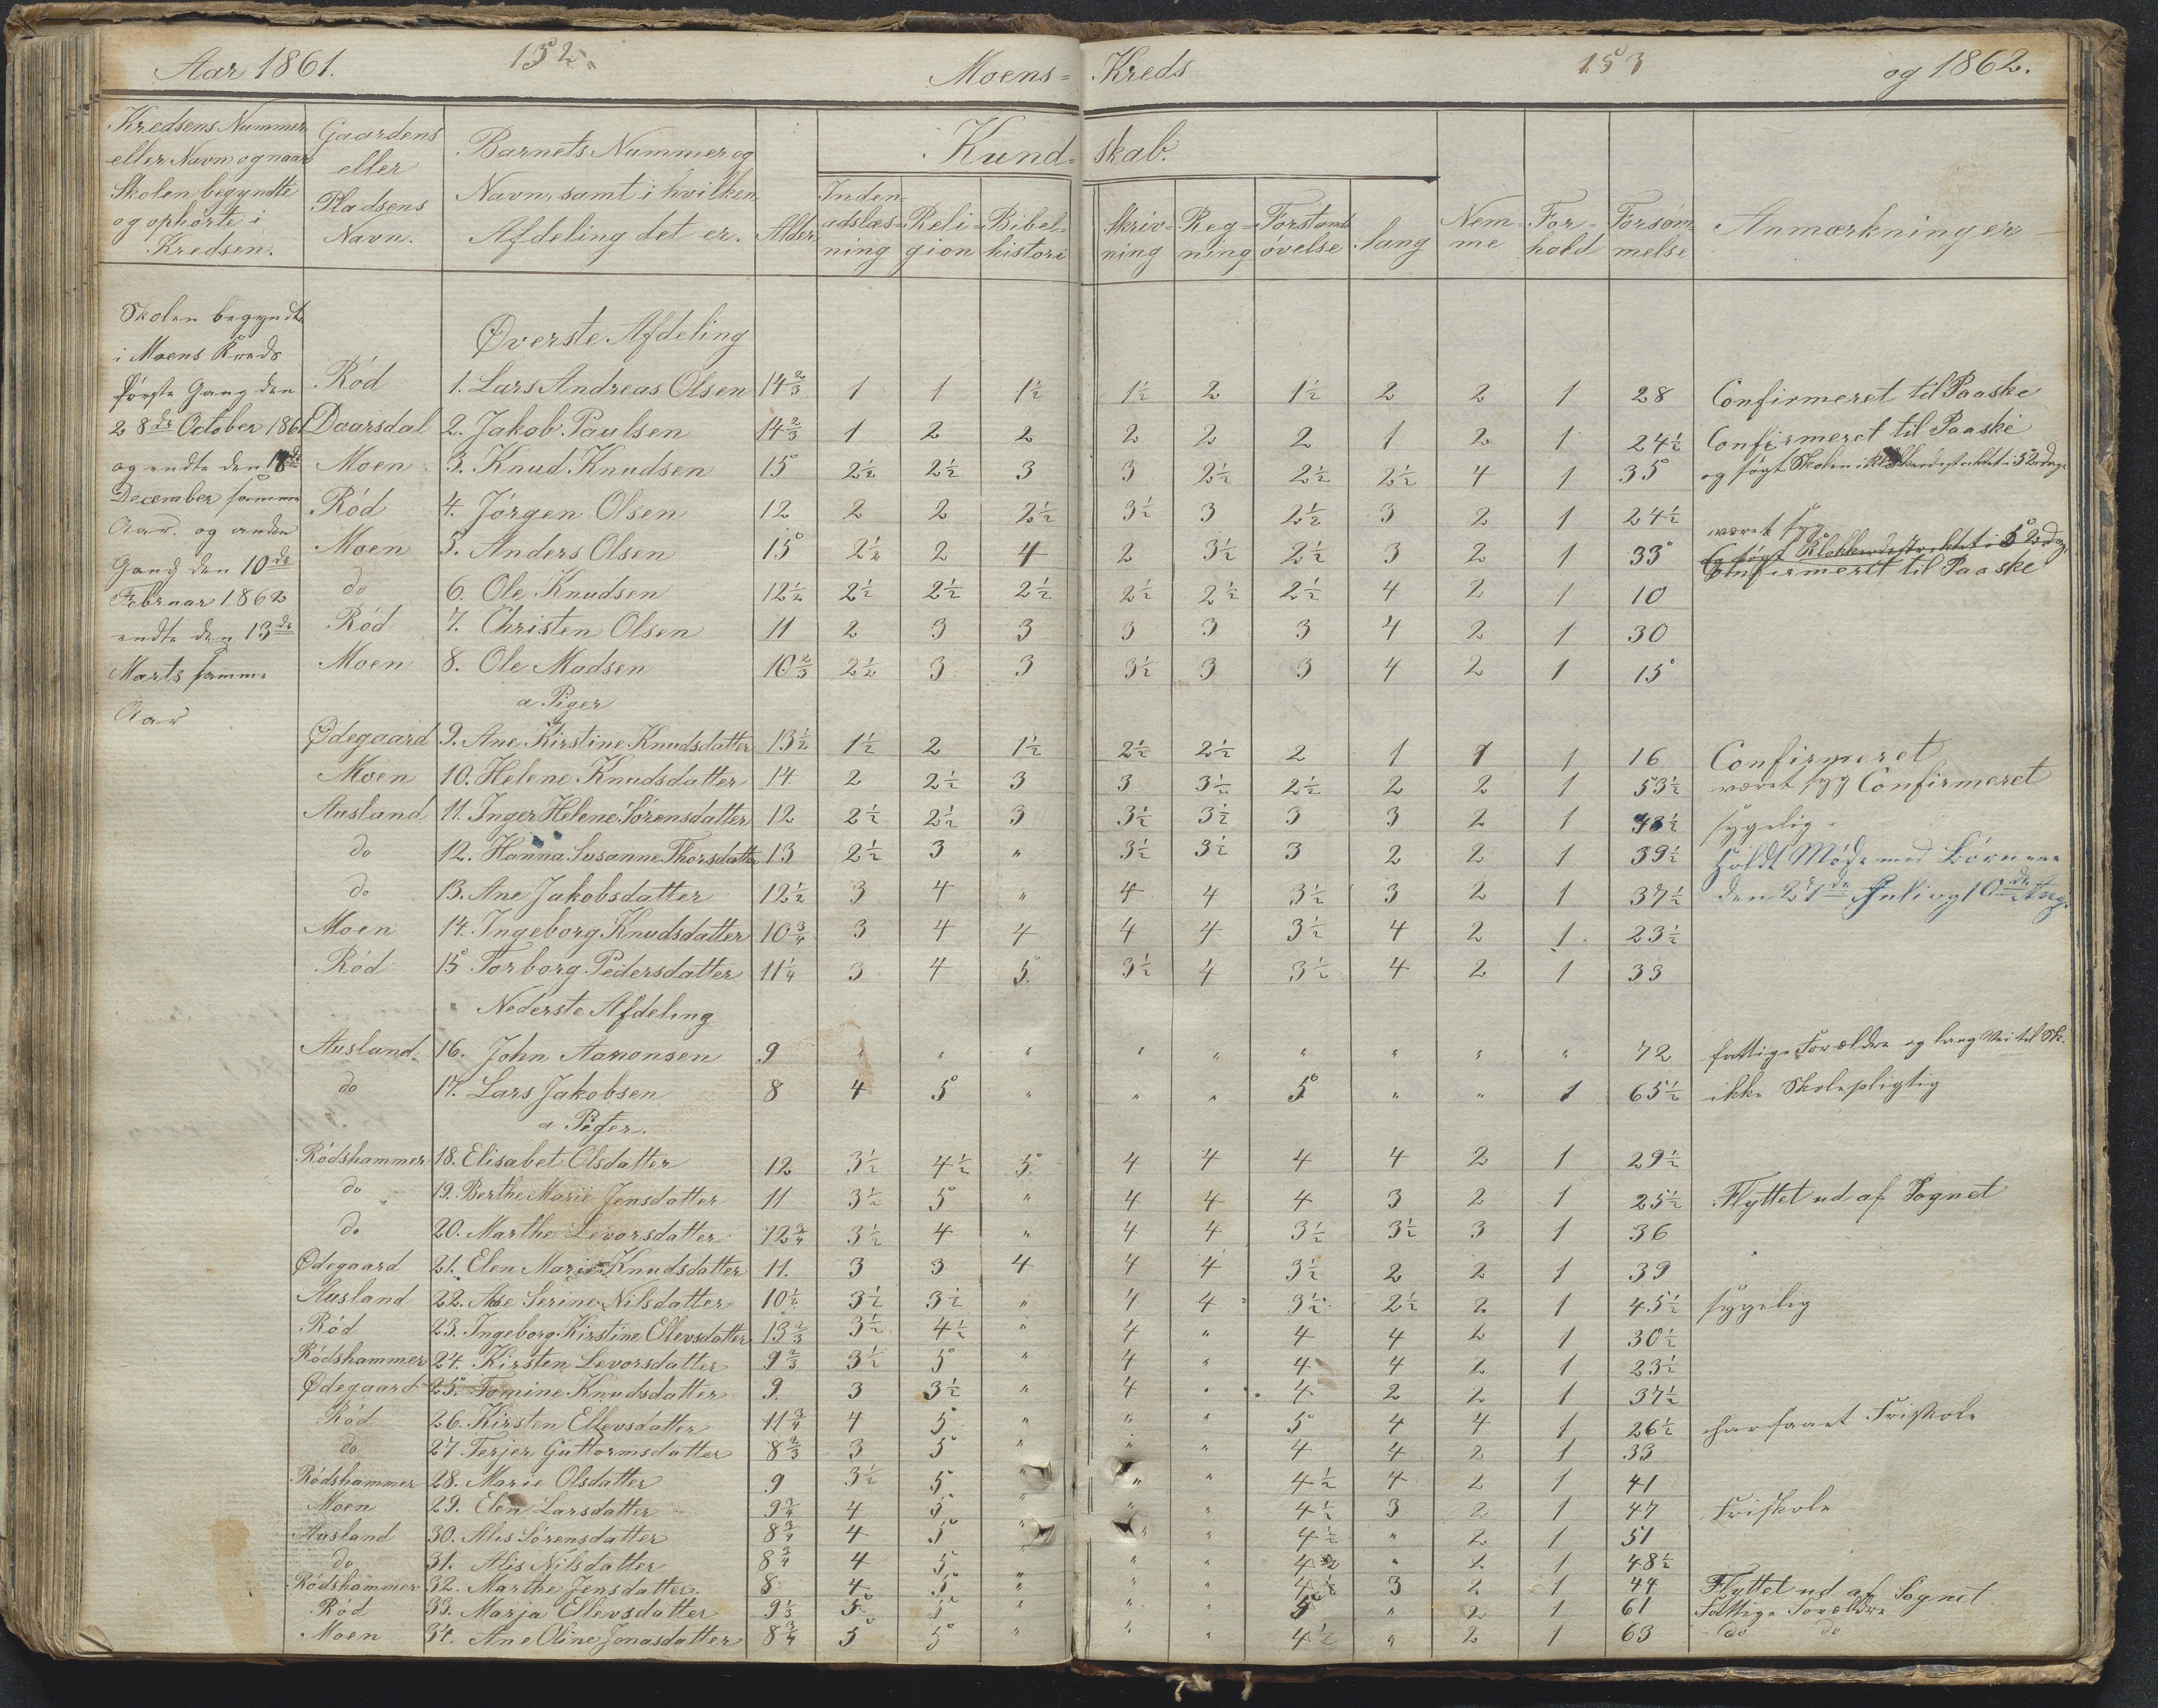 Aar 1861. 152. Moens= Kreds 153 og 1862.
Kredsens Nummer eller Navn og naar Skolen begyndte og ophørte i Kredsen.
Gaardens eller Pladsens Navn.
Barnets Nummer og Navn, samt i hvilken Afdeling det er.
Alder
Kund= skab.
Inden adslæs= ning
Reli= gion
Bibel= histori
Skriv= ning
Reg= ning
Forstands øvelse
Sang
Nem= me
For= hold
Forsøm melse
Anmærkninger
Skolen begyndte
i Moens Kreds
første Gang den
28de October 1861
og endte den 18de
December samme
Aar. og anden
Gang den 10de
Februar 1862
endte den 13de
Marts samme
Aar
Øverste Afdeling
Rød 1. Lars Andreas Olsen 14 2/3 1 1 1½ 1½ 2 1½ 2 2 1 28 Confirmeret til Paaske
Daarsdal 2. Jakob Paulsen 14 2/3 1 2 2 2 2 2 1 2 1 24½ Confirmeret til Paaske
Moen 3. Knud Knudsen 15 2½ 2½ 3 3 2½ 2½ 2½ 4 1 35 og søgt Skolen i Klokkerdistriktet i 5 Dage
Rød 4. Jørgen Olsen 12 2 2 2½ 3½ 3 2½ 3 2 1 24½ været syg
Moen 5. Anders Olsen 15 2½ 2 4 2 3½ 2½ 3 2 1 33 og søgt Klokkerdistriktet i 5 Dage
Confirmeret til Paaske
do 6. Ole Knudsen 12½ 2½ 2½ 2½ 2½ 2½ 2½ 4 2 1 10
Rød 7. Christen Olsen 11 2 3 3 3 3 3 4 2 1 30
Moen 8. Ole Madsen 10 2/3 2½ 3 3 3½ 3 3 4 2 1 15
a Piger
Ødegaard 9. Ane Kirstine Knudsdatter 13½ 1½ 2 1½ 2½ 2½ 2 1 1 1 16 Confirmeret
Moen 10. Helene Knudsdatter 14 2 2½ 3 3 3½ 2½ 2 2 1 53½ været syg Confirmeret
Ausland 11. Inger Helene Sørensdatter 12 2½ 2½ 3 3½ 3½ 3 3 2 1 48½ sygelig
do 12. Hanna Susanne Thorsdatter 13 2½ 3 " 3½ 3½ 3 2 2 1 39½ Holdt Møde med Børnene
do 13. Ane Jakobsdatter 12½ 3 4 " 4 4 3½ 3 2 1 37½ den 21de Juli og 10de Aug.
Moen 14. Ingeborg Knudsdatter 10¾ 3 4 4 4 4 3½ 4 2 1 23½
Rød 15 Torborg Pedersdatter 11¼ 3 4 5 3½ 4 3½ 4 2 1 33
Nederste Afdeling
Ausland 16. John Aanonsen 9 " " " " " " " " " 72 fattige Forældre og lang Vei til Sk.
do 17. Lars Jakobsen 8 4 5 " " " 5 " " 1 65½ ikke Skolepligtig
a Piger.
Rødshammer 18. Elisabet Olsdatter 12 3½ 4½ 5 4 4 4 4 2 1 29½
do 19. Berthe Marie Jensdatter 11 3½ 5 " 4 4 4 3 2 1 25½ Flyttet ud af Sognet
do 20. Marthe Levorsdatter 12¾ 3½ 4 " 4 4 3½ 3½ 3 1 36
Ødegaard 21. Elen Marie Knudsdatter 11. 3 3 4 4 4 3½ 2 2 1 39
Ausland 22. Ase Serine Nilsdatter 10½ 3½ 3½ " 4 4 3½ 2½ 2 1 45½ sygelig
Rød 23. Ingeborg Kirstine Ellevsdatter 13 2/3 3½ 4½ " 4 " 4 4 2 1 30½
Rødshammer 24. Kirsten Levorsdatter 9 2/3 3½ 5 " 4 " 4 4 2 1 23½
Ødegaard 25. Tomine Knudsdatter 9. 3 3½ " 4 " 4 2 2 1 37½
Rød 26. Kirsten Ellevsdatter 11¾ 4 5 " " " 5 4 4 1 26½ har faaet Friskole
do 27. Terjer Guttormsdatter 8 2/3 3 5 " " " 4 4 2 1 33
Rødshammer 28. Marie Olsdatter 9 3½ 5 " " " 4½ 4 2 1 41
Moen 29. Elen Larsdatter 9¾ 4 5 " " " 4½ 3 2 1 47 Friskole
Ausland 30. Alis Sørensdatter 8¾ 4 5 " " " 4½ " 2 1 51
do 31. Alis Nilsdatter 8¾ 4 5 " " " 4½ " 2 1 48½
Rødshammer 32. Marthe Jensdatter. 8 4 5 " " " 4½ 3 2 1 44 Flyttet ud af Sognet
Rød 33. Marja Ellevsdatter 9⅓ 5 5 " " " 5 " 2 1 61 Fattige Forældre
Moen 34. Ane Oline Jonasdatter 8¾ 5 5 " " " 4½ " 2 1 63 do do